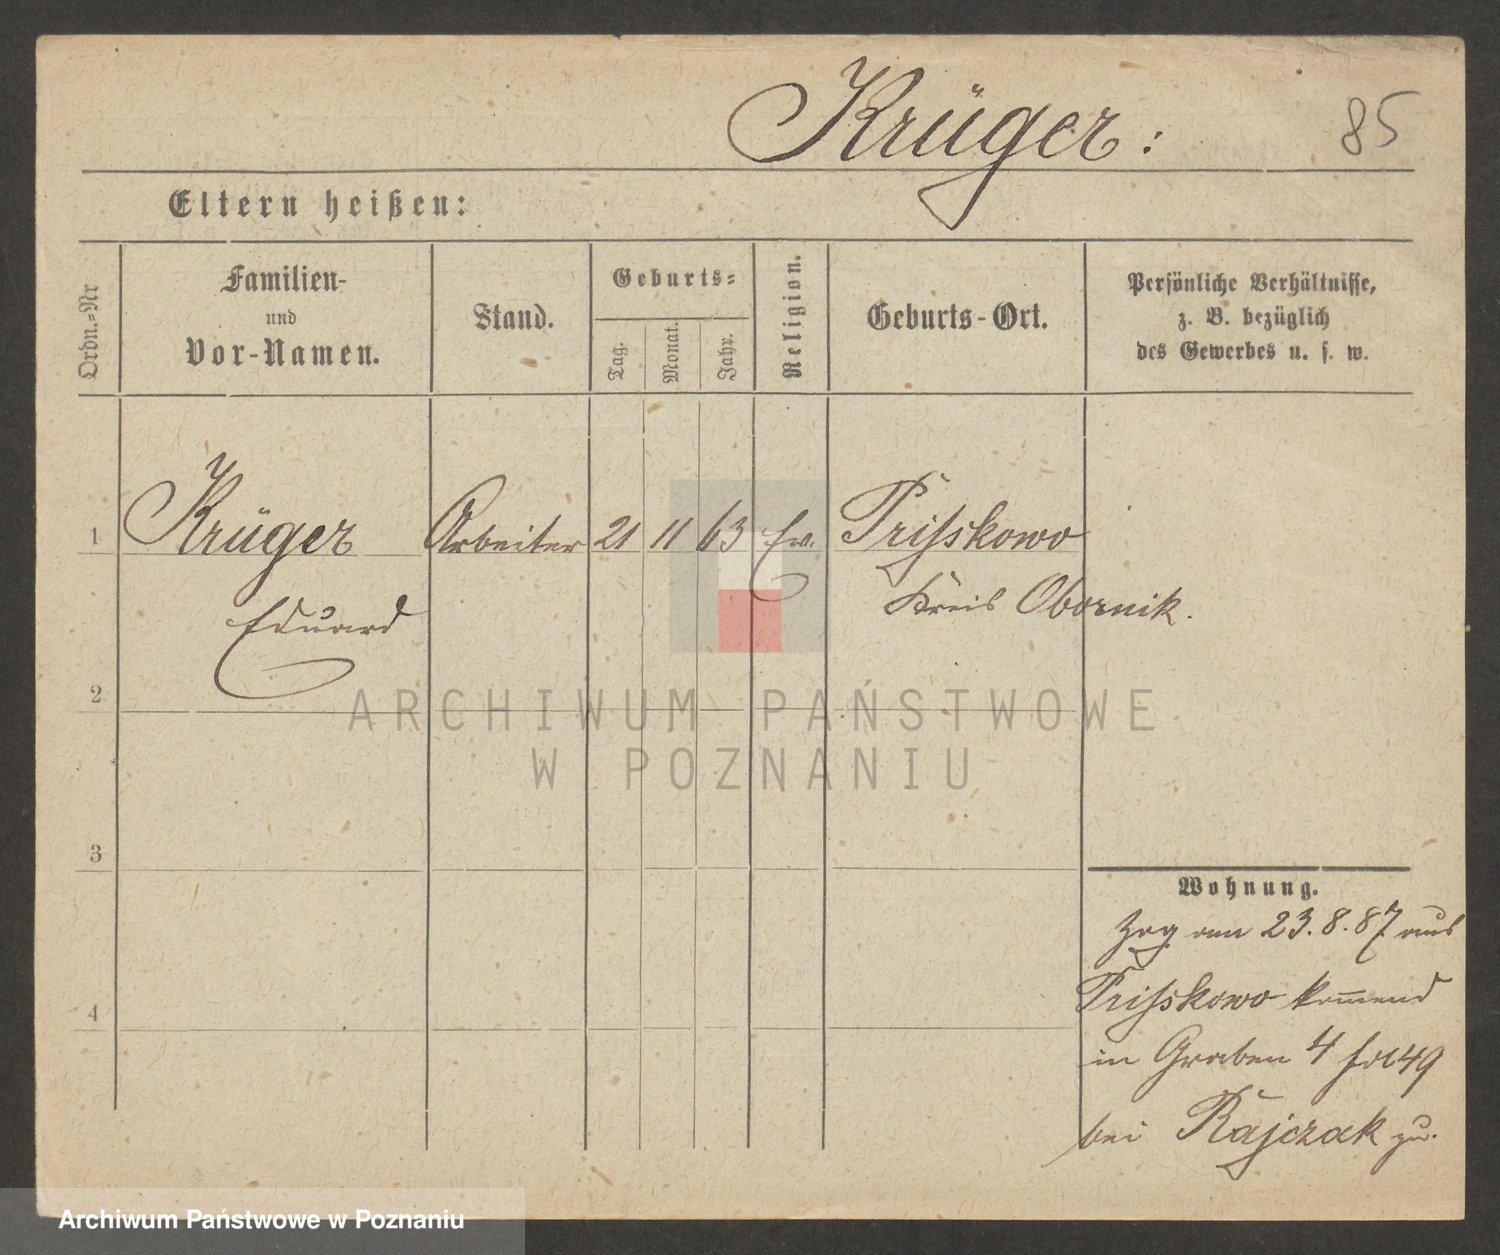 Krüger:
85
Eltern heißen:
Ordn.-Nr
Familien-
und
Vor-Namen.
Stand.
Geburts-
Tag.
Monat.
Jahr.
Religion.
Geburts-Ort.
Persönliche Verhältnisse,
z. B. bezüglich
des Gewerbes u. s. w.
1
Krüger Arbeiter 21 11 63 Ev. Prifskowo
Eduard
Kreis Obornik.
2
ARCHIWUM PAŃSTWOWE
W POZNANIU
3
4
Wohnung.
Zog am 23.8.87 aus
Prifskowo kom̅end
in Graben 4
bei Rajczak zu.
Archiwum Państwowe w Poznaniu